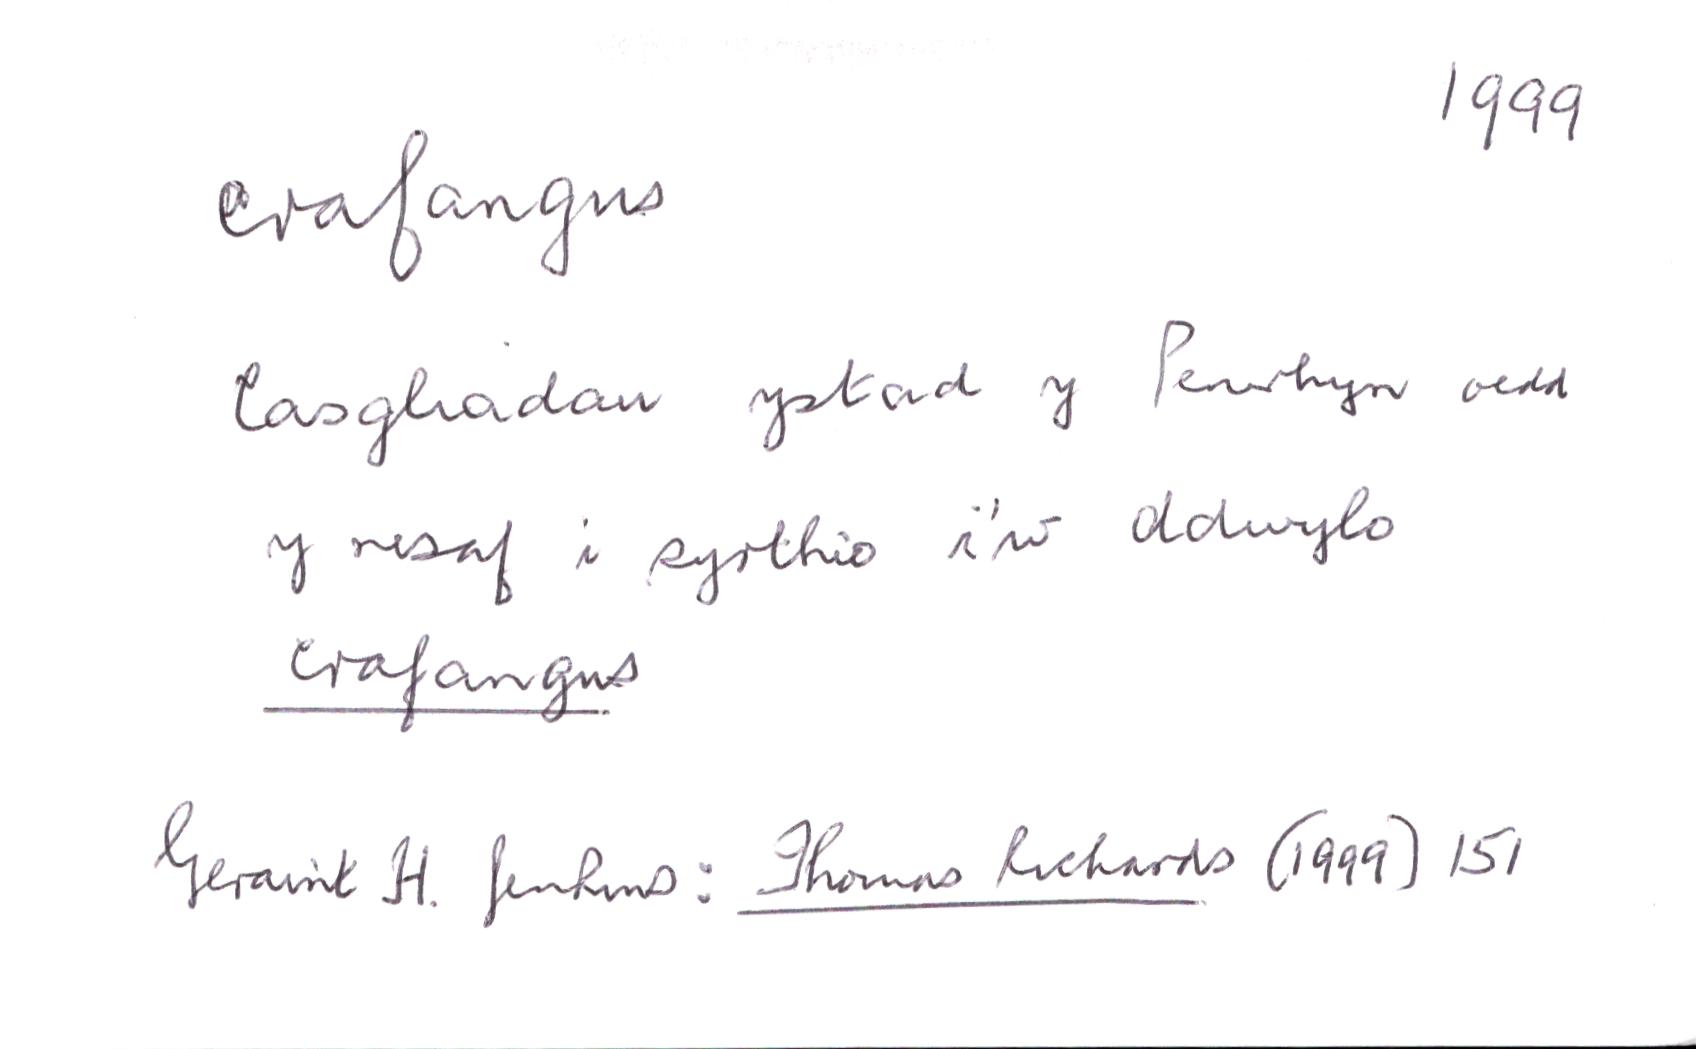 1999
crafangus
Casgliadau ystad y Penrhyn oedd
y nesaf i syrthio i'w ddwylo
crafangus
Geraint H. Jenkins: Thomas Richards (1999) 151